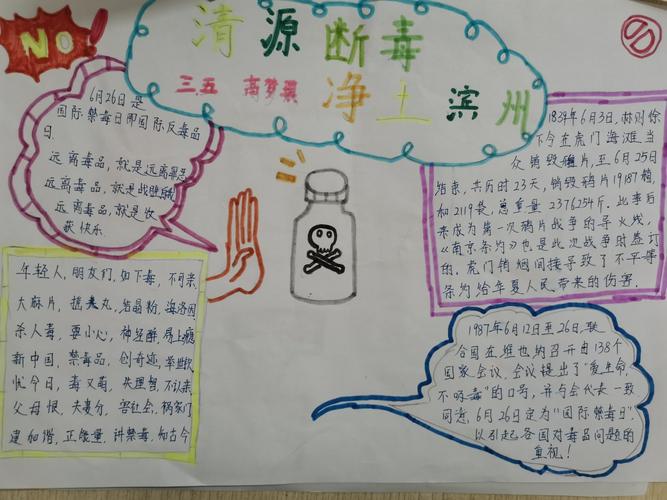 NO!
清源断毒
三五
净土滨州
6月26日是
国际禁毒日即国际反毒品
日.
远离毒品,就是远离罪恶
远离毒品,就是战胜
远离毒品,就是收
获快乐.
1839年6月3日,林则徐
下令在虎门海滩当
众销毁鸦片,至6月25日
结束,共历时23天,销毁鸦片19187箱,
和2119袋,总重量2376254斤.此事后
来成为第一次鸦片战争的导火线,
《南京条约》也是此次战争时签订
的.虎门销烟间接导致了不平等
条约给华夏人民带来的伤害.
年轻人,朋友们,如下毒,不可亲,
大麻片,摇头丸,冰晶粉,海洛因
杀人毒,要小心,神经醉,易上瘾
新中国,禁毒品,创奇迹,举世钦
忧今日,毒又萌,失理智,不认亲
父母恨,夫妻分,害社会,祸家门
建和谐,正能量,讲禁毒,知古今
1987年6月12日至26日,联
合国在维也纳召开由138个
国家会议,会议提出了“爱生命,
不吸毒”的口号,并与会代表一致
同意,6月26日定为“国际禁毒日”,
以引起各国对毒品问题的
重视!